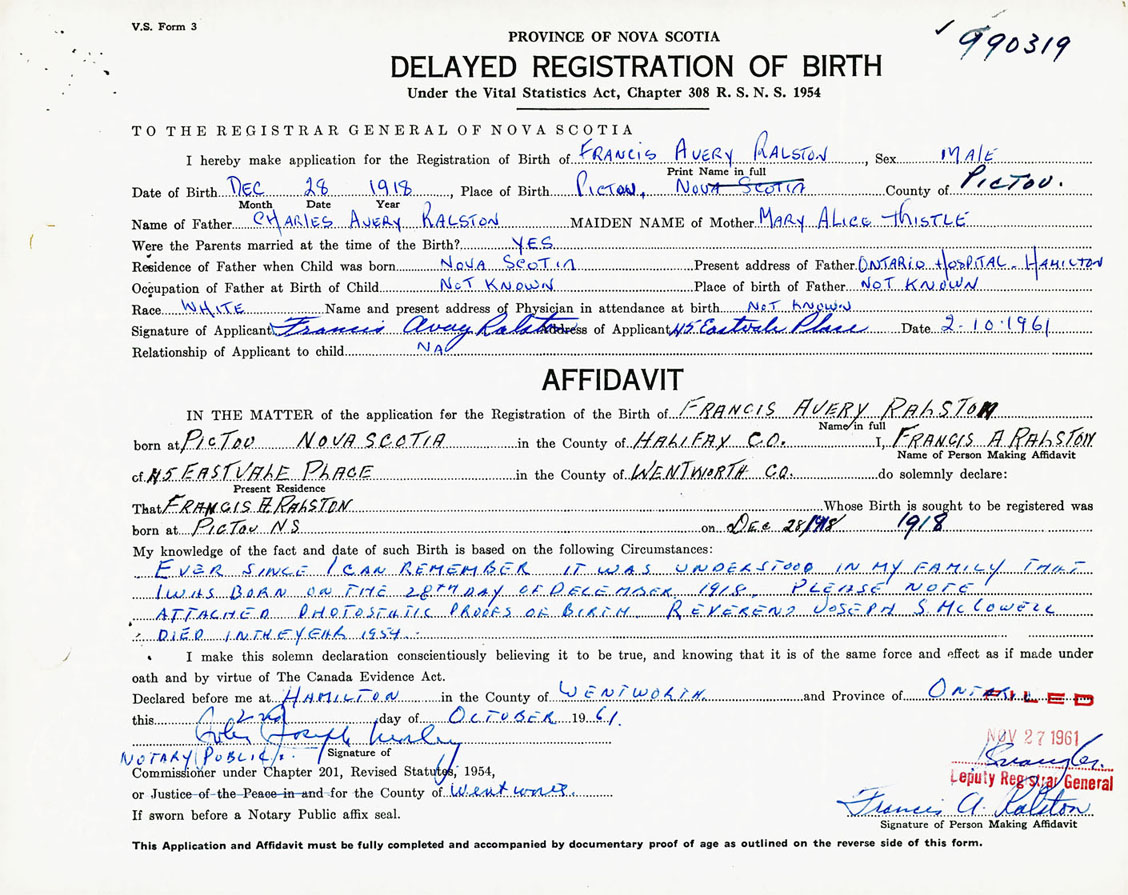 V.S. Form 3
990319
PROVINCE OF NOVA SCOTIA
DELAYED REGISTRATION OF BIRTH
Under the Vital Statistics Act, Chapter 308 R. S. N. S. 1954
TO THE REGISTRAR GENERAL OF NOVA SCOTIA
I hereby make application for the Registration of Birth of FRANCIS AVERY RALSTON, Sex MALE
Print Name in full
Date of Birth DEC 28 1918, Place of Birth PICTOU, NOVA SCOTIA County of PICTOU.
Month Date Year
Name of Father CHARLES AVERY RALSTON MAIDEN NAME of Mother MARY ALICE THISTLE
Were the Parents married at the time of the Birth? YES
Residence of Father when Child was born NOVA SCOTIA Present address of Father ONTARIO HOSPITAL - HAMILTON
Occupation of Father at Birth of Child NOT KNOWN Place of birth of Father NOT KNOWN
Race WHITE Name and present address of Physician in attendance at birth NOT KNOWN
Signature of Applicant Francis Avery Ralston Address of Applicant 45 Eastvale Place Date 2-10-1961
Relationship of Applicant to child NA
AFFIDAVIT
IN THE MATTER of the application for the Registration of the Birth of FRANCIS AVERY RALSTON
Name in full
born at PICTOU NOVA SCOTIA in the County of HALIFAX CO. I, FRANCIS A RALSTON
Name of Person Making Affidavit
of 45 EASTVALE PLACE in the County of WENTWORTH CO. do solemnly declare:
Present Residence
That FRANCIS A. RALSTON Whose Birth is sought to be registered was
born at PICTOU N.S. on DEC 28/1918 1918
My knowledge of the fact and date of such Birth is based on the following Circumstances:
EVER SINCE I CAN REMEMBER IT WAS UNDERSTOOD IN MY FAMILY THAT
I WAS BORN ON THE 28TH DAY OF DECEMBER 1918. PLEASE NOTE
ATTACHED PHOTOSTATIC PROOFS OF BIRTH. REVEREND JOSEPH S. MCLOWELL
DIED IN THE YEAR 1954.
I make this solemn declaration conscientiously believing it to be true, and knowing that it is of the same force and effect as if made under
oath and by virtue of The Canada Evidence Act.
Declared before me at HAMILTON in the County of WENTWORTH and Province of ONTARIO FILED
this 2nd day of OCTOBER 1961.
NOV 27 1961
John Joseph
NOTARY PUBLIC. Signature of
Commissioner under Chapter 201, Revised Statutes, 1954,
Deputy Registrar General
or Justice of the Peace in and for the County of Wentworth.
Francis A. Ralston
If sworn before a Notary Public affix seal.
Signature of Person Making Affidavit
This Application and Affidavit must be fully completed and accompanied by documentary proof of age as outlined on the reverse side of this form.